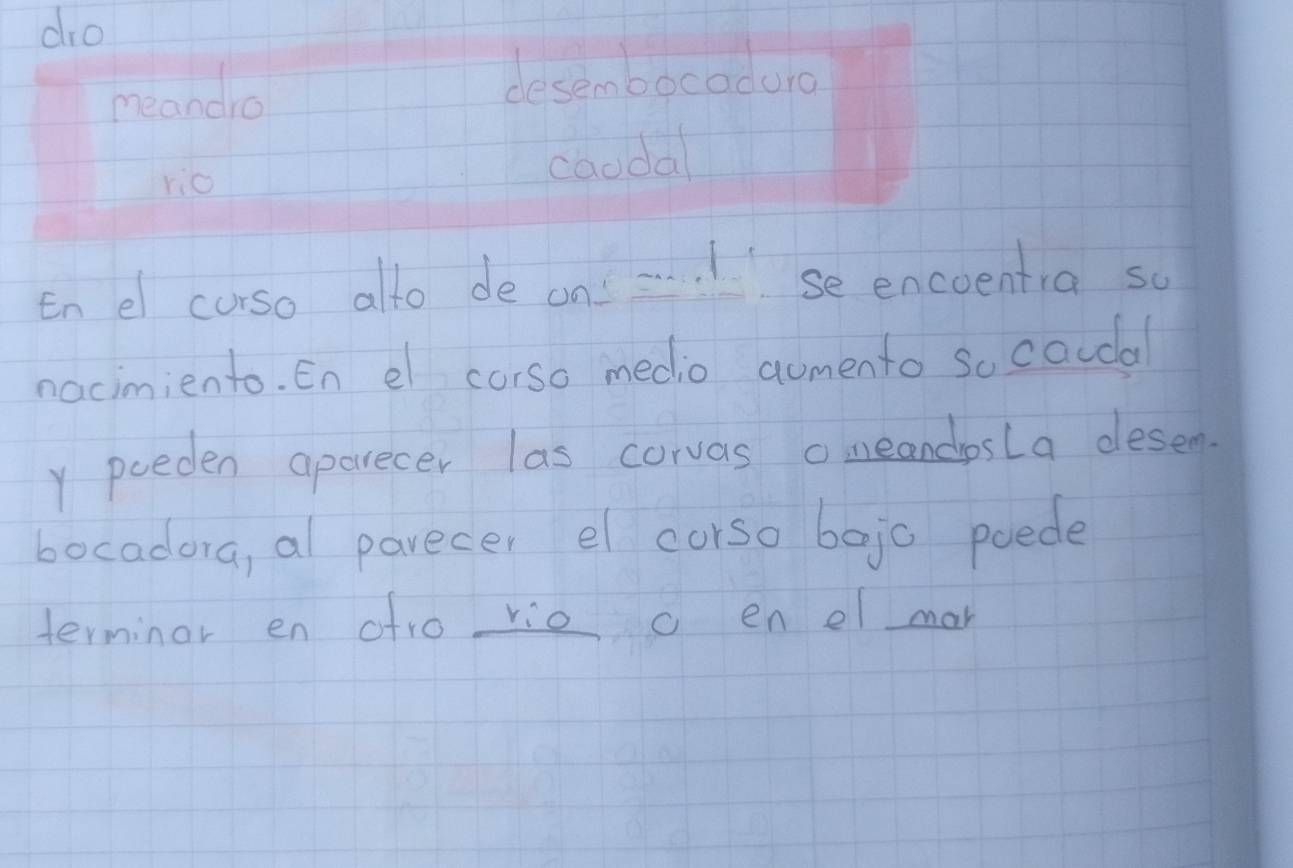 dro
meandro desembocadura
rio caudal
En el curso alto de un se encuentra su
nacimiento. En el curso medio aumento su caudal
y pueden aparecer las curvas o meandros La desem-
bocadura, al parecer el curso bajo puede
terminar en otro rio o en el mar